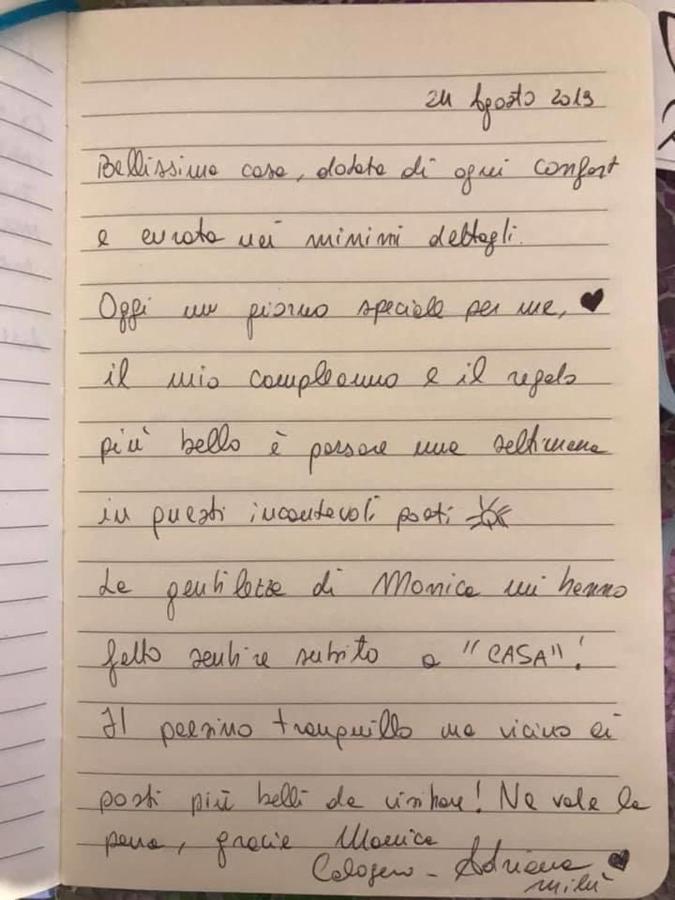 24 Agosto 2019
Bellissima casa, dotata di ogni confort
e curata nei minimi dettagli.
Oggi un giorno speciale per me,
il mio compleanno e il regalo
più bello è passare una settimana
in questi incantevoli posti
La gentilezza di Monica mi hanno
fatto sentire subito a "CASA"!
Il paesino tranquillo ma vicino ai
posti più belli da visitare! Ne vale la
pena, grazie Monica
Calogero - Adriana
milù